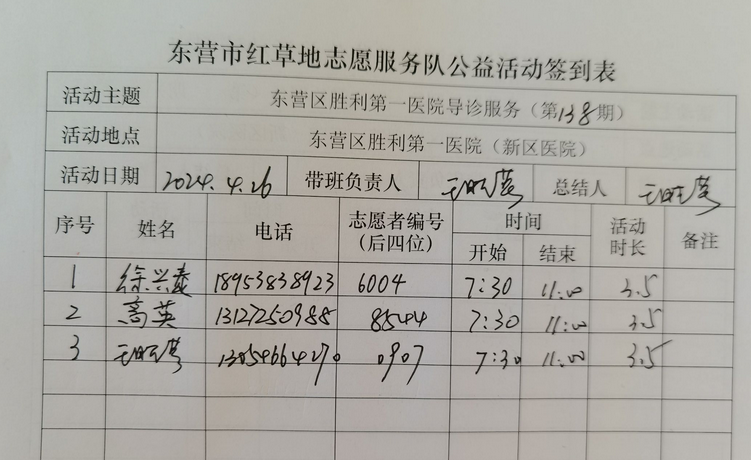 东营市红草地志愿服务队公益活动签到表
活动主题 东营区胜利第一医院导诊服务（第138期）
活动地点 东营区胜利第一医院（新区医院）
活动日期 2024.4.26 带班负责人 王 总结人 王
序号 姓名 电话 志愿者编号（后四位） 时间 开始 结束 活动时长 备注
1 徐兴 18953838923 6004 7:30 11:00 3.5
2 高英 13127250988 8544 7:30 11:00 3.5
3 王 13054664270 0907 7:30 11:00 3.5